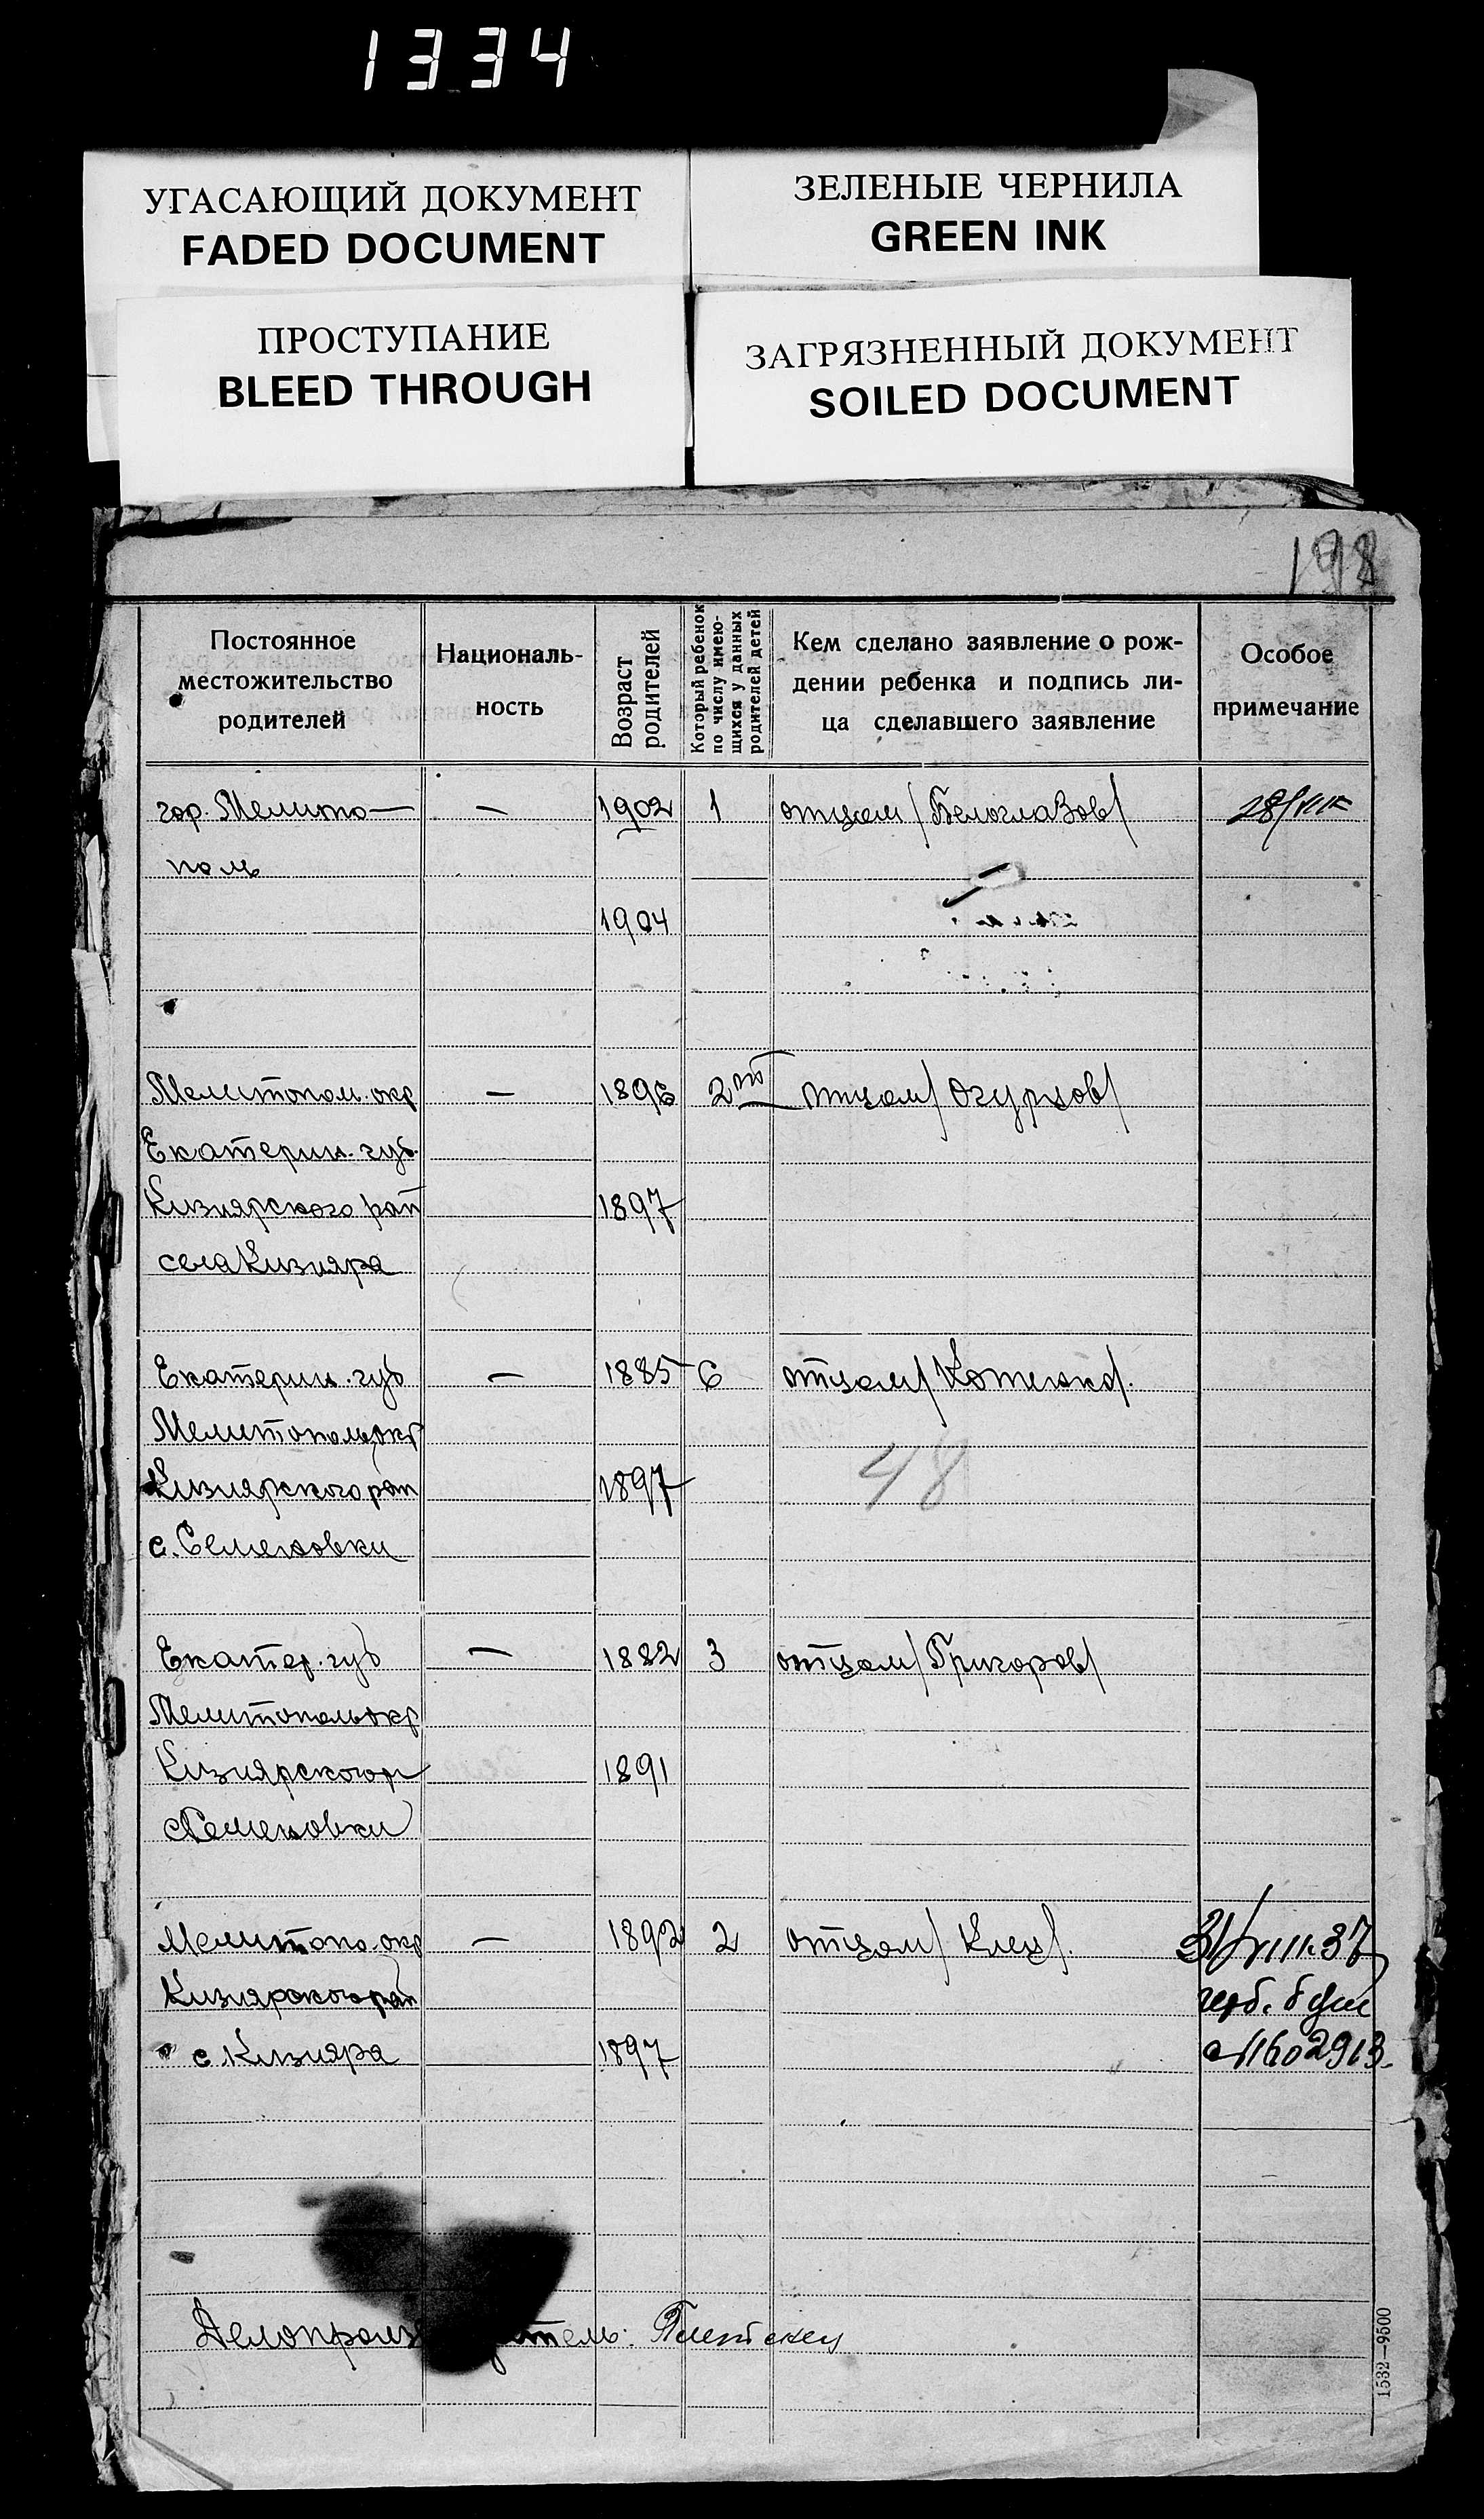 1334
УГАСАЮЩИЙ ДОКУМЕНТ
FADED DOCUMENT
ЗЕЛЕНЫЕ ЧЕРНИЛА
GREEN INK
ПРОСТУПАНИЕ
BLEED THROUGH
ЗАГРЯЗНЕННЫЙ ДОКУМЕНТ
SOILED DOCUMENT
198
Постоянное
местожительство
родителей
Националь-
ность
Возраст
родителей
Который ребенок
по числу имею-
щихся у данных
родителей детей
Кем сделано заявление о рож-
дении ребенка и подпись ли-
ца сделавшего заявление
Особое
примечание
гор. Мелито— — 1902 1 отцом /Белоглазов/
поль
1904
Мелитопол. окр — 1896 2й отцом/ Огурцов/
Екатерин. губ.
Кизиярского рай 1897
села Кизияра
Екатерин. губ — 1885 6 отцом/ Котенко/.
Мелитополь окр
Кизиярского рай 1897
48
с. Семеновки
Екатер. губ — 1882 3 отцом/ Григоров/
Мелитополь окр
Кизиярского р 1891
с Семеновки
Мелитопо. окр — 1892 2 отцом/ Клец/. 31/VIII.37
Кизиярского рай
с. Кизияра 1897 №1602913.
1532—9500